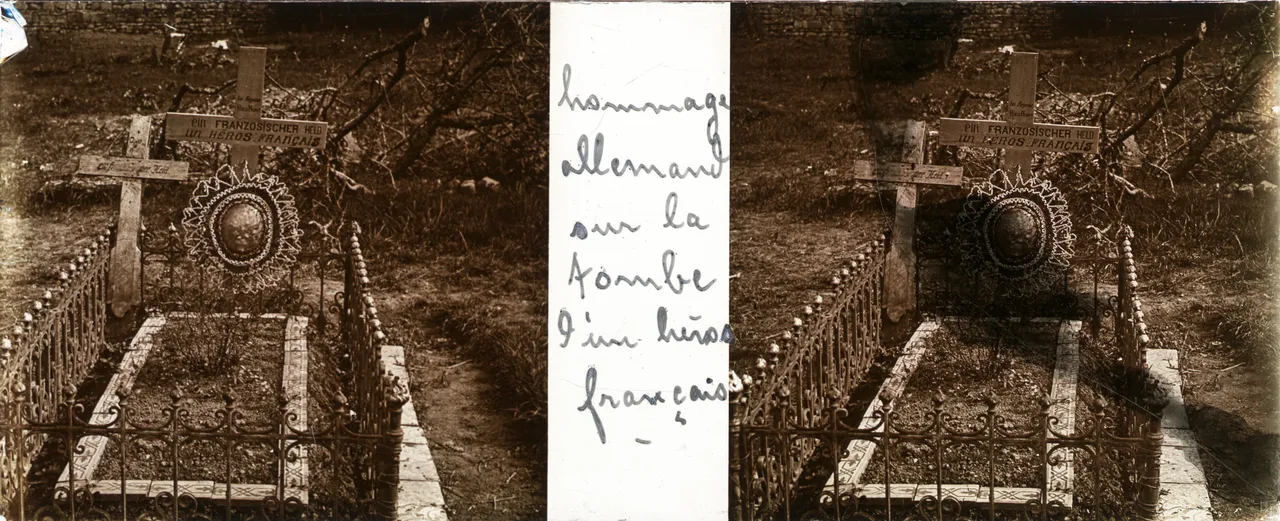 EIN FRANZÖSISCHER HELD
UN HEROS FRANÇAIS
hommage
allemand
sur la
tombe
d'un héros
français
EIN FRANZÖSISCHER HELD
UN HEROS FRANÇAIS